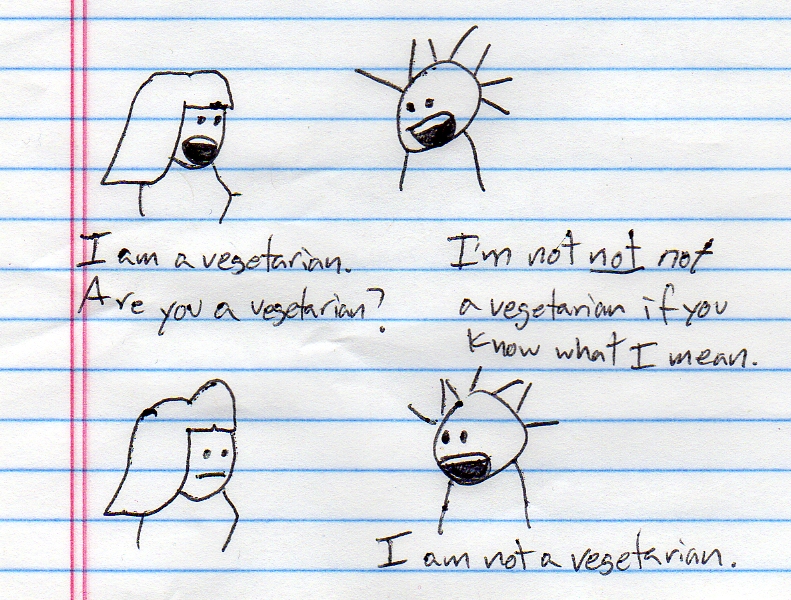 I am a vegetarian.
Are you a vegetarian?
I'm not not not
a vegetarian if you
know what I mean.
I am not a vegetarian.